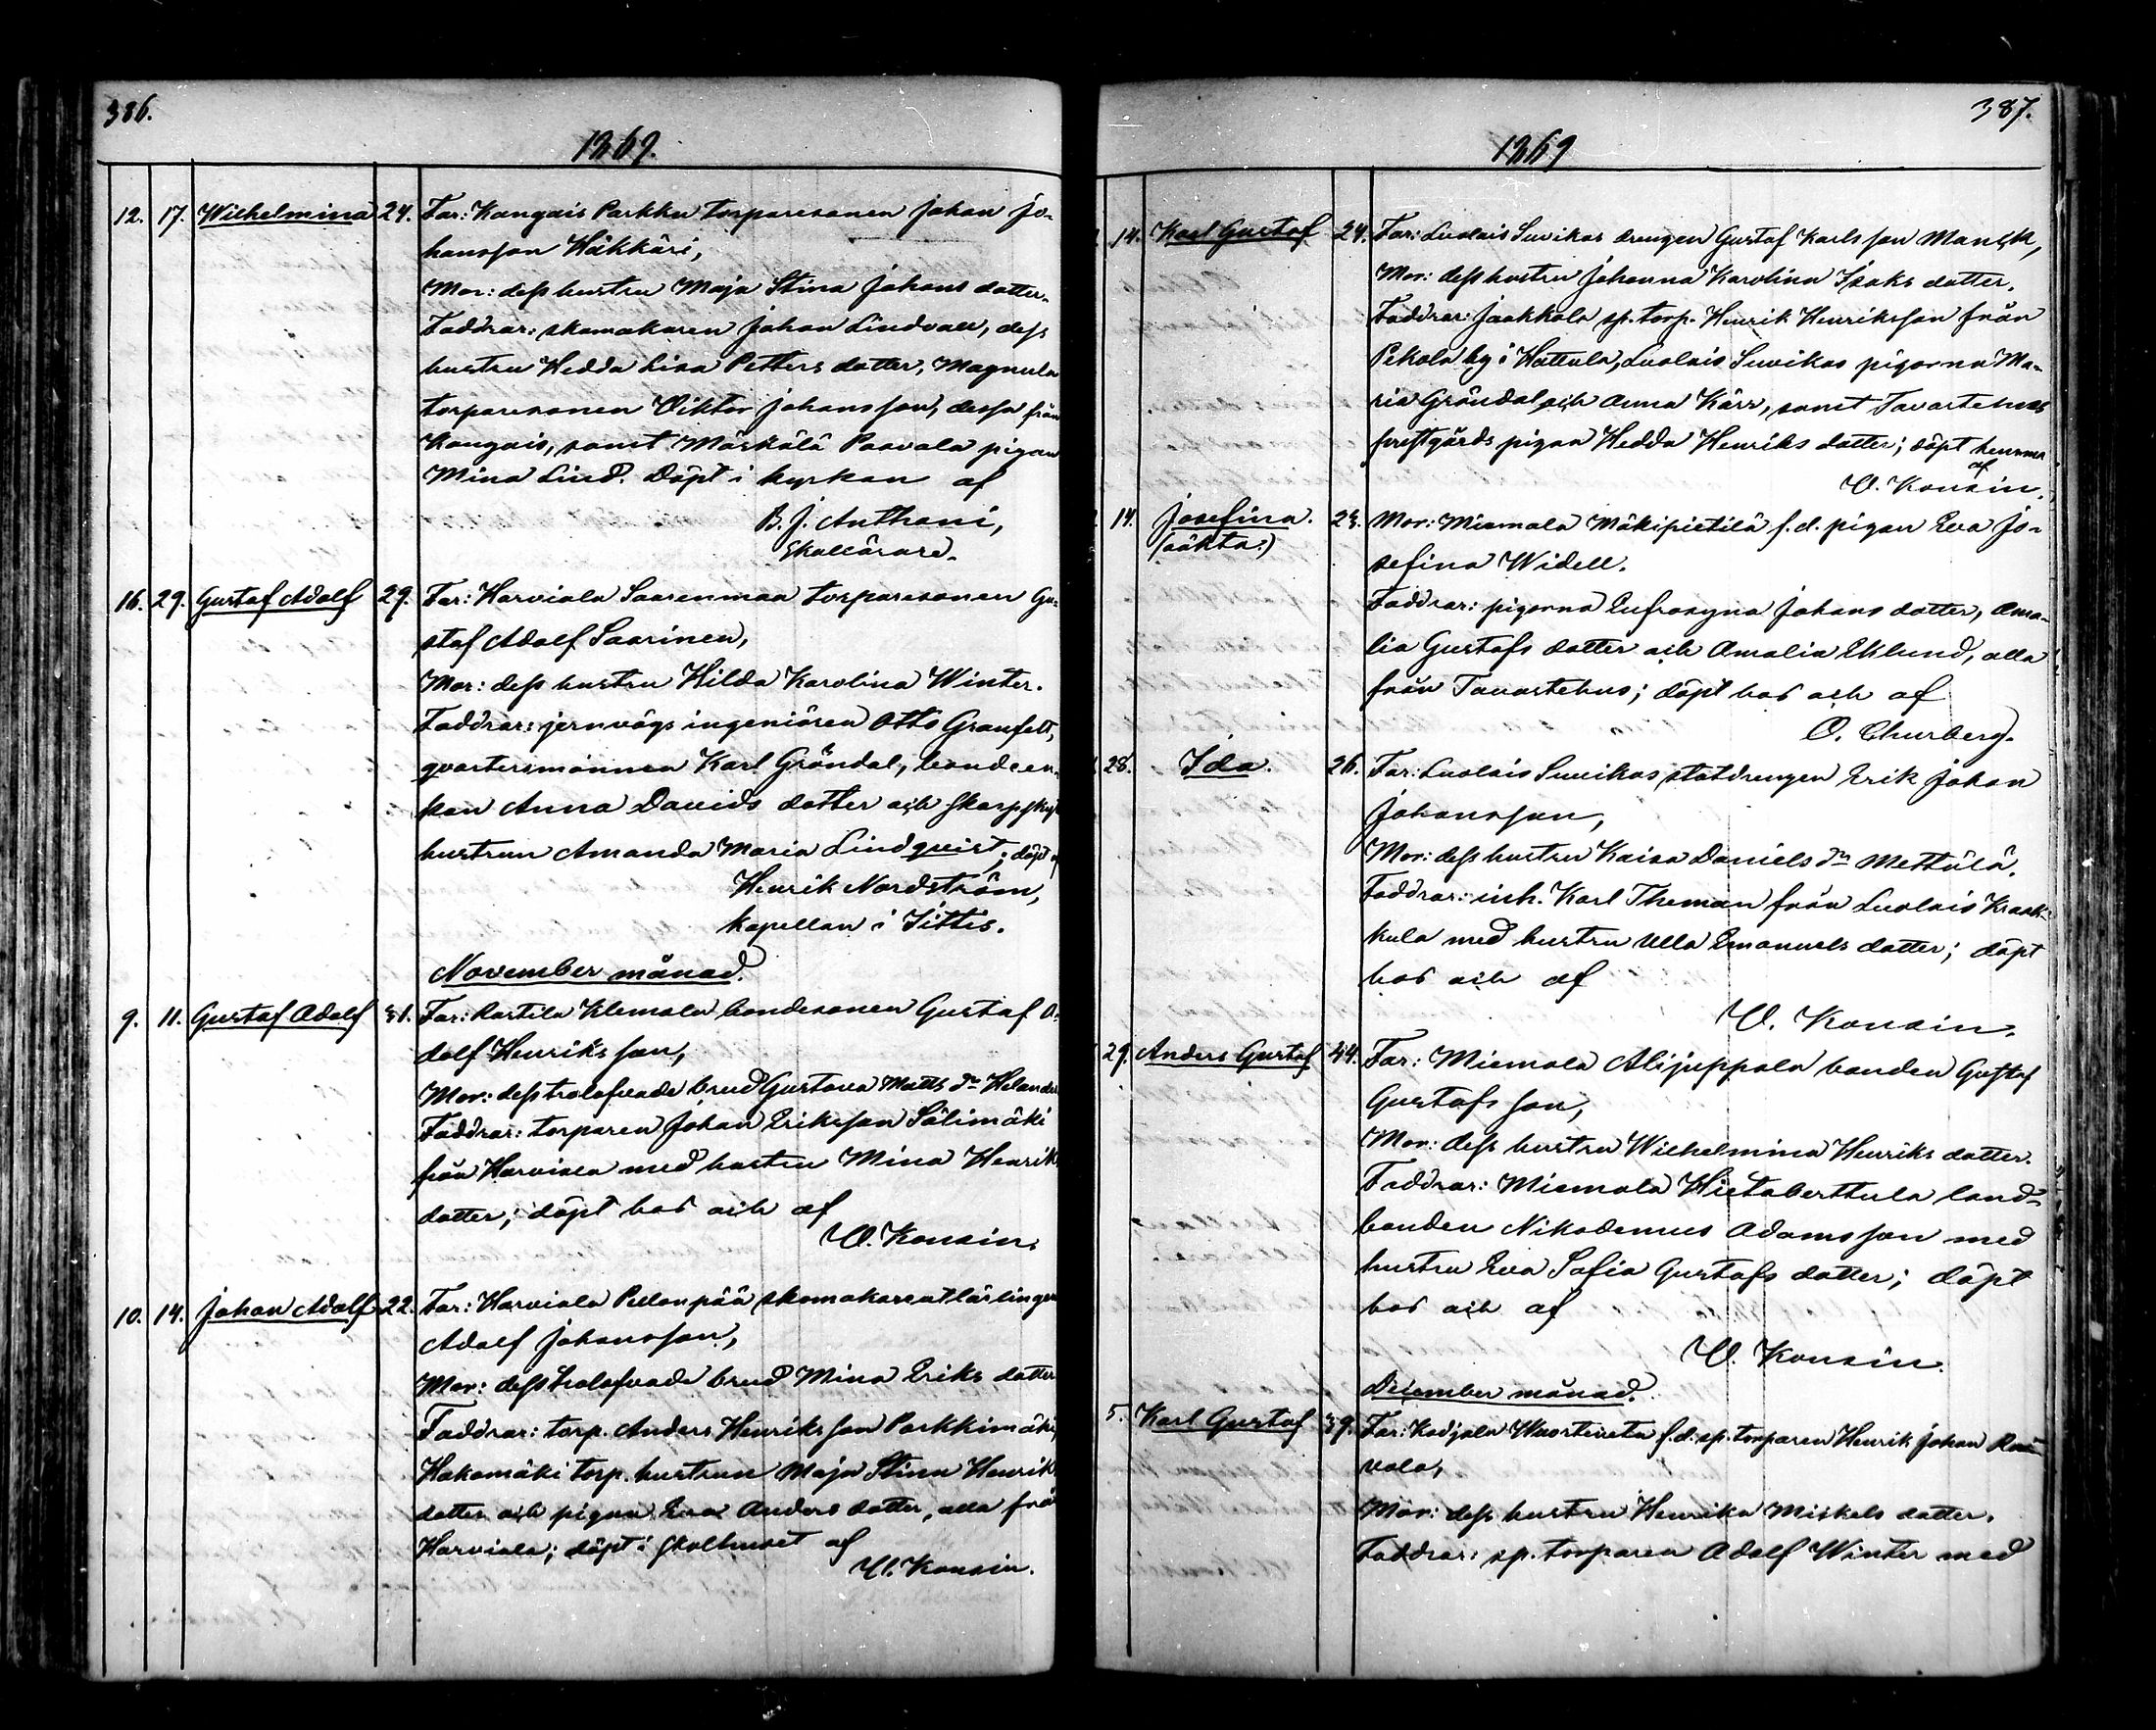 386.
1869.
12. 17. Wilhelmina 24. Far: Kangais Parkku torparesonen Johan Jo-
hansson Häkkäri,
Mor: dess hustru Maja Stina Johans dotter.
Faddrar: skomakaren Johan Lindvall, dess
hustru Hedda Lisa Petters dotter, Magnula
torparesonen Viktor Johansson, dessa från
Kangais, samt Mäskälä Paavola pigan
Mina Lind. Döpt i kyrkan af
B. J. Anthoni,
Skollärare.
16. 29. Gustaf Adolf 29. Far: Harviala Saarenmaa torparesonen Gu-
staf Adolf Saarinen,
Mor: dess hustru Hilda Karolina Winter.
Faddrar: jernvägs ingeniören Otto Granfelt,
qvartersmannen Karl Gröndal, bondeen-
kan Anna Davids dotter och skarpsky
hustrun Amanda Maria Lindqvist; döpt af
Henrik Nordström,
kapellan i Jittis.
November månad.
9. 11. Gustaf Adolf 31. Far: Rastila Klemola bondesonen Gustaf A-
dolf Henriksson,
Mor: dess trolofvade brud Gustava Matts dr Helander
Faddrar: torparen Johan Eriksson Sälimäki
från Harviala med hustru Mina Henriks
dotter; döpt hos och af
W. Konsin.
10. 14. Johan Adolf 22. Far: Harviala Pellonpää skomakareatlärlingen
Adolf Johansson,
Mor: dess trolofvade brud Mina Eriks dotter
Faddrar: torp. Anders Henriksson Parkkimäki,
Hakamäki torp. hustrun Maja Stina Henriks
dotter och pigan Eva Anders dotter, alla frå
Harviala; döpt i skolhuset af
W. Konsin.
387.
1869
14. Karl Gustaf 24. Far: Luolais Suvikas drengen Gustaf Karlsson Mansk,
Mor: dess hustru Johanna Karolina Isaks dotter.
Faddrar: Jaakkola sp. torp. Henrik Henriksson från
Pekola by i Hattula, Luolais Suvikas pigorna Ma-
ria Gröndal och Anna Kärr, samt Tavastehus
prestgårds pigan Hedda Henriks dotter; döpt hemma
af
W. Konsin.
14. Josefina. 23. Mor: Miemala Mäkipietilä f.d. pigan Eva Jo-
(oäkta.)
sefina Widell.
Faddrar: pigorna Eufrosyna Johans dotter, Ama-
lia Gustafs dotter och Amalia Eklund, alla
från Tavastehus; döpt hos och af
O. Churberg.
28. Ida. 26. Far: Luolais Suvikas statdrengen Erik Johan
Johansson,
Mor: dess hustru Kaisa Daniels dr Mettälä.
Faddrar: inh. Karl Theman från Luolais Kraak-
kula med hustru Ulla Emanuels dotter; döpt
hos och af
W. Konsin.
29. Anders Gustaf 44. Far: Miemala Alijuppala bonden Gustaf
Gustafsson,
Mor: dess hustru Wilhelmina Henriks dotter.
Faddrar: Miemala Hietaberttula land-
bonden Nikodemus Adamsson med
hustru Eva Sofia Gustafs dotter; döpt
hos och af
W. Konsin.
December månad.
5. Karl Gustaf 39. Far: Kadjala f.d. sp. torparen Henrik Johan
vola,
Mor: dess hustru Henrika Mickels dotter.
Faddrar: sp. torparen Adolf Winter med